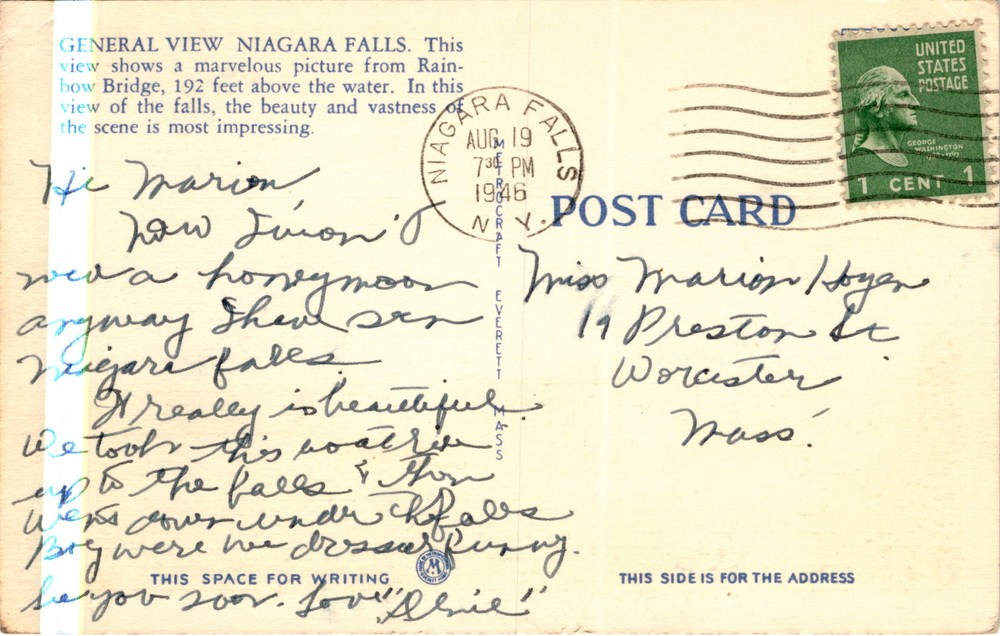 GENERAL VIEW NIAGARA FALLS. This
view shows a marvelous picture from Rain-
bow Bridge, 192 feet above the water. In this
view of the falls, the beauty and vastness of
the scene is most impressing.
NIAGARA FALLS
AUG 19
7 30 PM
1946
N. Y.
UNITED
STATES
POSTAGE
GEORGE
WASHINGTON
1 CENT 1
POST CARD
METROCRAFT EVERETT MASS
Hi Marion
Now
a honeymoon
anyway I have seen
Niagara falls
It really is beautiful.
We took this boatride
up to the falls & then
went down under the falls
Boy were we dressed funny.
See you soon. Love "Elsie"
Miss Marion Hogan
19 Preston St
Worcester
Mass.
M
THIS SPACE FOR WRITING
THIS SIDE IS FOR THE ADDRESS